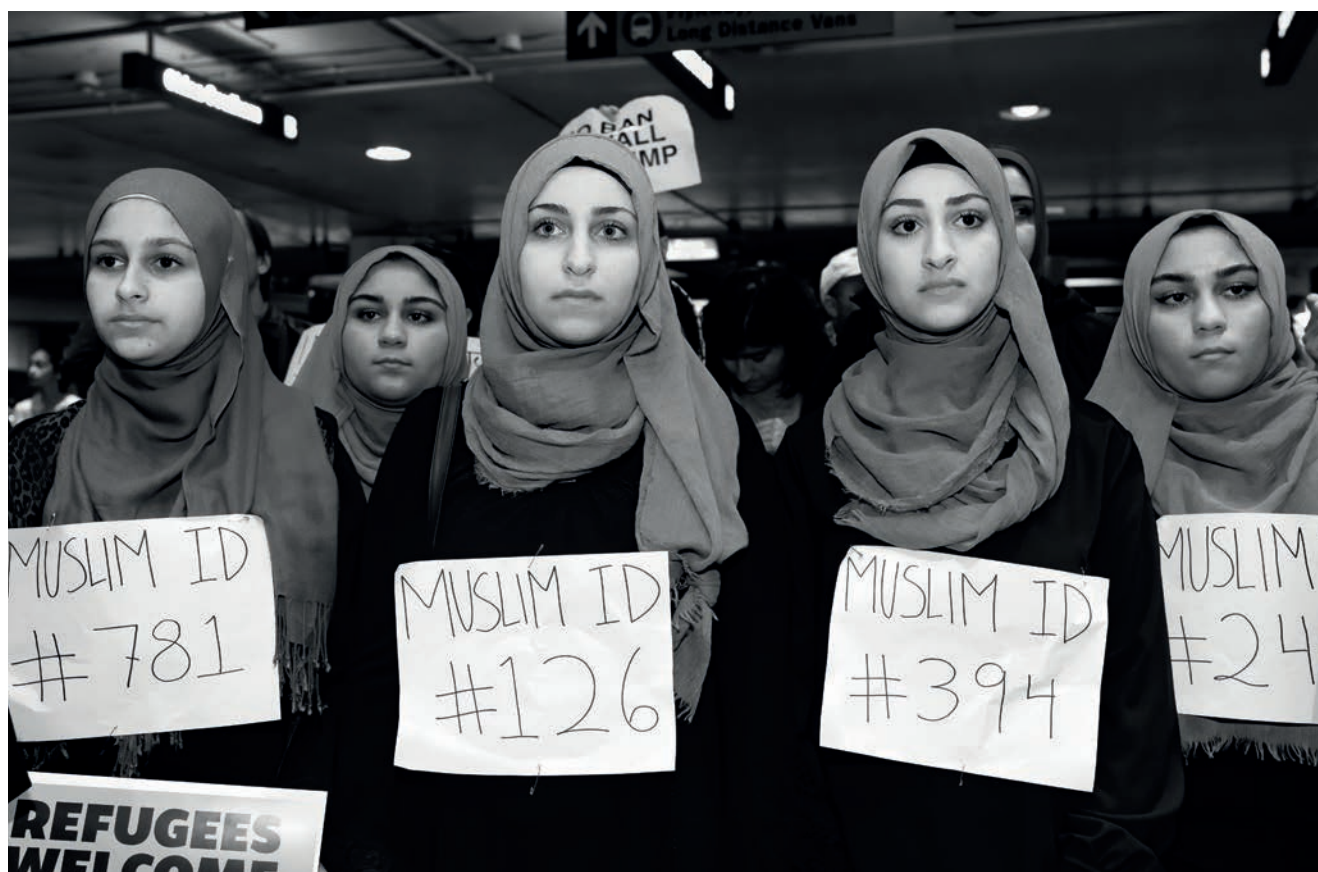 Long Distance Vans
BAN
MUSLIM ID
#781
MUSLIM ID
#126
MUSLIM ID
#394
MUSLIM
#24
REFUGEES
WELCOME